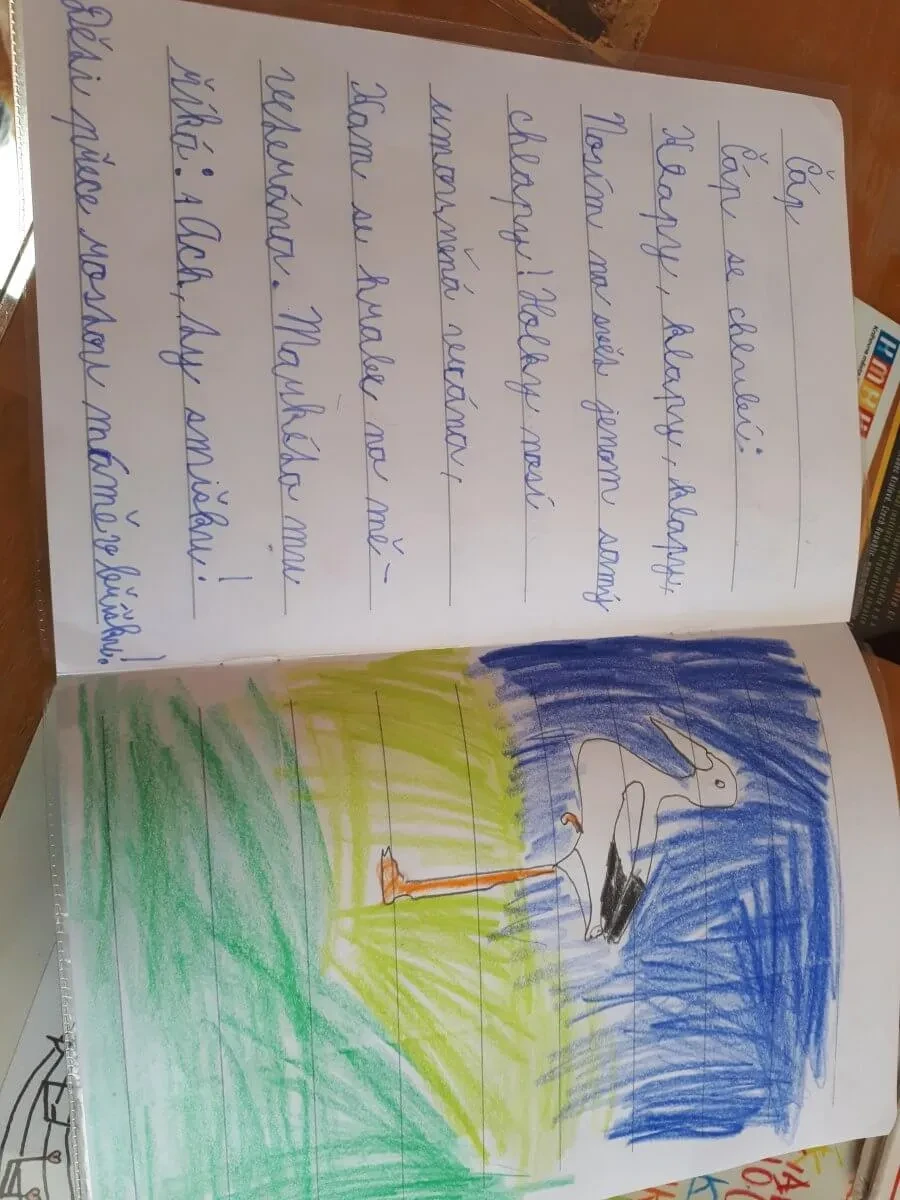 Čáp
Čáp se chlubí:
Klapy, klapy, klapy,
Nosím na svět jenom samý
chlapy! Holky nosí
umouněná vrána,
Kam se hrabe na mě-
veterána. Markéta mu
říká: Ach, ty smíšku!
Děti přece rostou mámě v bříšku!